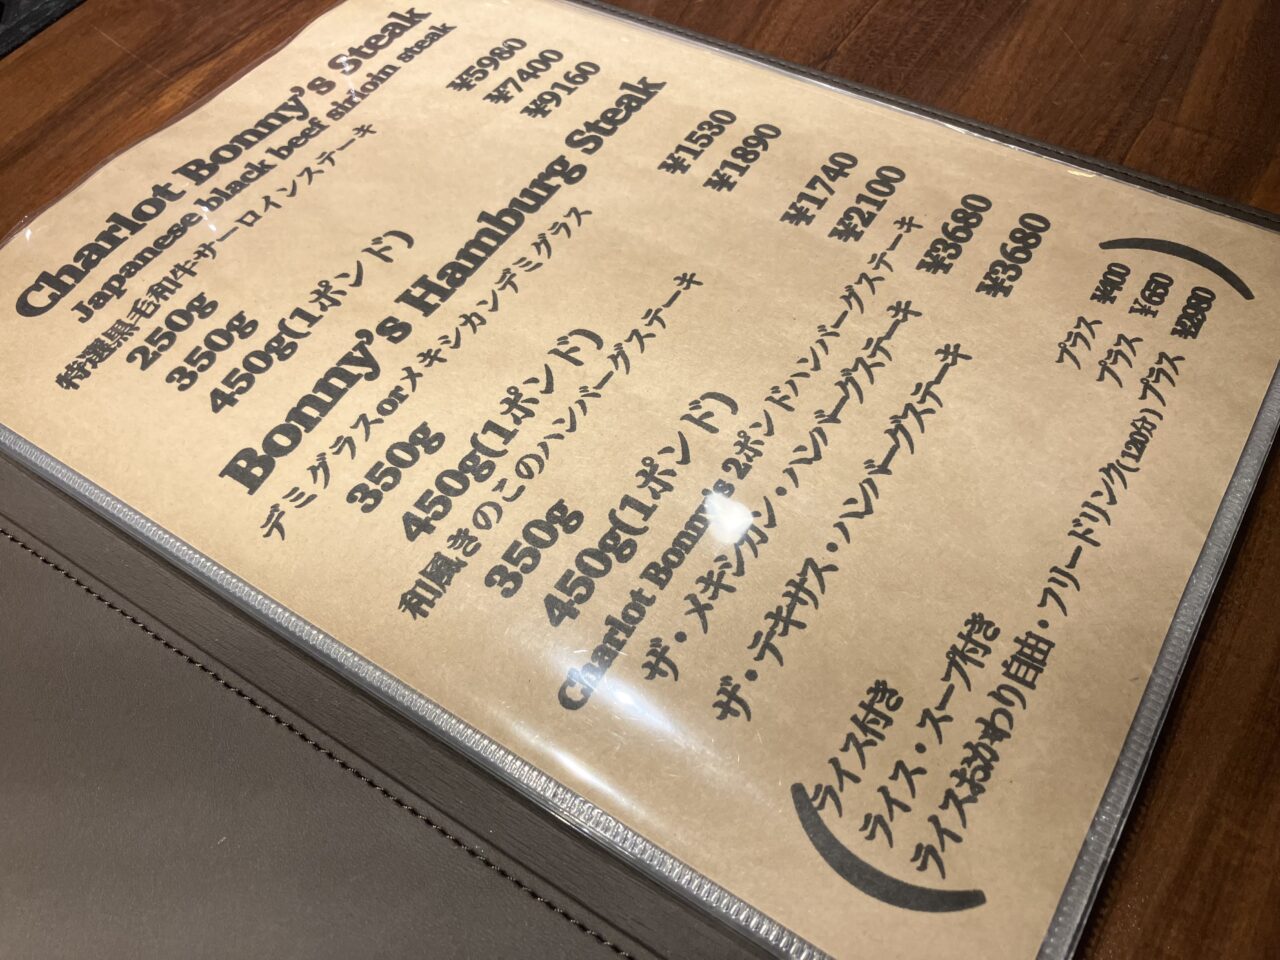 Charlot Bonny's Steak
Japanese black beef sirloin steak
特選黒毛和牛サーロインステーキ
250g ¥5980
350g ¥7400
450g(1ポンド) ¥9160
Bonny's Hamburg Steak
デミグラスorメキシカンデミグラス
350g ¥1530
450g(1ポンド) ¥1890
和風きのこのハンバーグステーキ
350g ¥1740
450g(1ポンド) ¥2100
Charlot Bonny's 2ポンドハンバーグステーキ
ザ・メキシカン・ハンバーグステーキ ¥3680
ザ・テキサス・ハンバーグステーキ ¥3680
ライス付き プラス ¥400
ライス・スープ付き プラス ¥650
ライスおかわり自由・フリードリンク(120分) プラス ¥2980